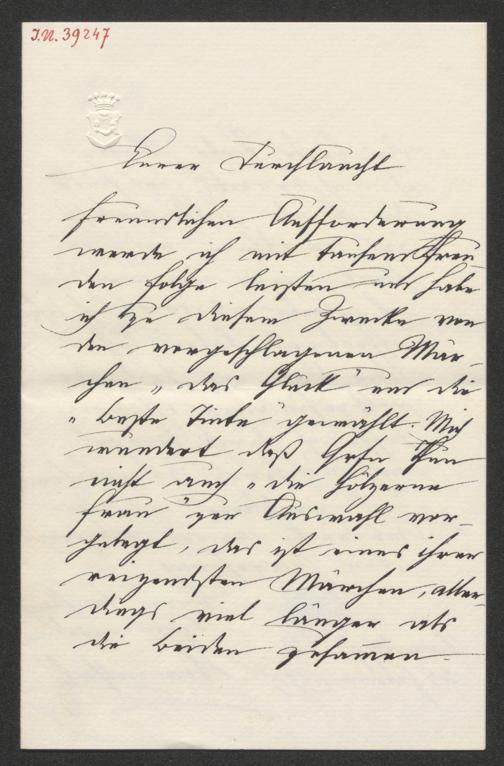 I.N. 39247
Eurer Durchlaucht
freundlichen Aufforderung
werde ich mit tausend Freu
den Folge leisten und habe
ich zu diesem Zwecke von
den vorgeschlagenen Mär-
chen „das Glück" und die
„beste Tinte" gewählt. Mich
wundert daß Grfn Thun
nicht auch „die hölzerne
Frau" zur Auswahl vor-
gelegt, das ist eines ihrer
reizendsten Märchen, aller-
dings viel länger als
die beiden zusammen